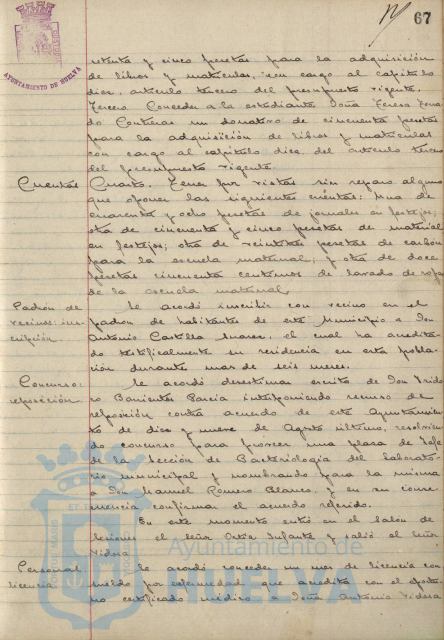 67
AYUNTAMIENTO DE HUELVA
setenta y cinco pesetas para la adquisición
de libros y matrículas, con cargo al capítulo
diez, artículo tercero del presupuesto vigente.
Tercero. Conceder a la estudiante Doña Teresa
do Contreras un donativo de cincuenta pesetas
para la adquisición de libros y matrículas
con cargo al capítulo diez del artículo tercero
del presupuesto vigente.
Cuentas
Cuarto. Tener por vistas sin reparo alguno
que oponer las siguientes cuentas: una de
cuarenta y ocho pesetas de jornales en festejos;
otra de cincuenta y cinco pesetas de material
en festejos; otra de veintitrés pesetas de carbón
para la escuela maternal; y otra de doce
pesetas cincuenta centimos de lavado de ropa
de la escuela maternal.
Padrón de
vecinos: ins-
cripción.
Se acordó inscribir con vecino en el
padron de habitantes de este Municipio a Don
Antonio Castilla Suarez, el cual ha acredita-
do testificalmente su residencia en esta pobla-
ción durante mas de seis meses.
Concurso:
reposición
Se acordó desestimar escrito de Don
co Barrientos Garcia interponiendo recurso de
reposición contra acuerdo de este Ayuntamien-
to de diez y nueve de Agosto último, resolvien-
do concurso para proveer una plaza de Jefe
de la Sección de Bacteriología del laborato-
rio municipal y nombrando para la misma
a Don Manuel Romero Blanco, y en su conse-
cuencia confirmar el acuerdo referido.
En este momento entró en el Salon de
Sesiones el señor Ortiz Infante y salió el Señor
Vidosa
Personal
licencia
Se acordó conceder un mes de licencia con
sueldo por enfermedad que acredita con el oportu-
no certificado médico a Doña Antonia Vidosa
Ayuntamiento de
HUELVA